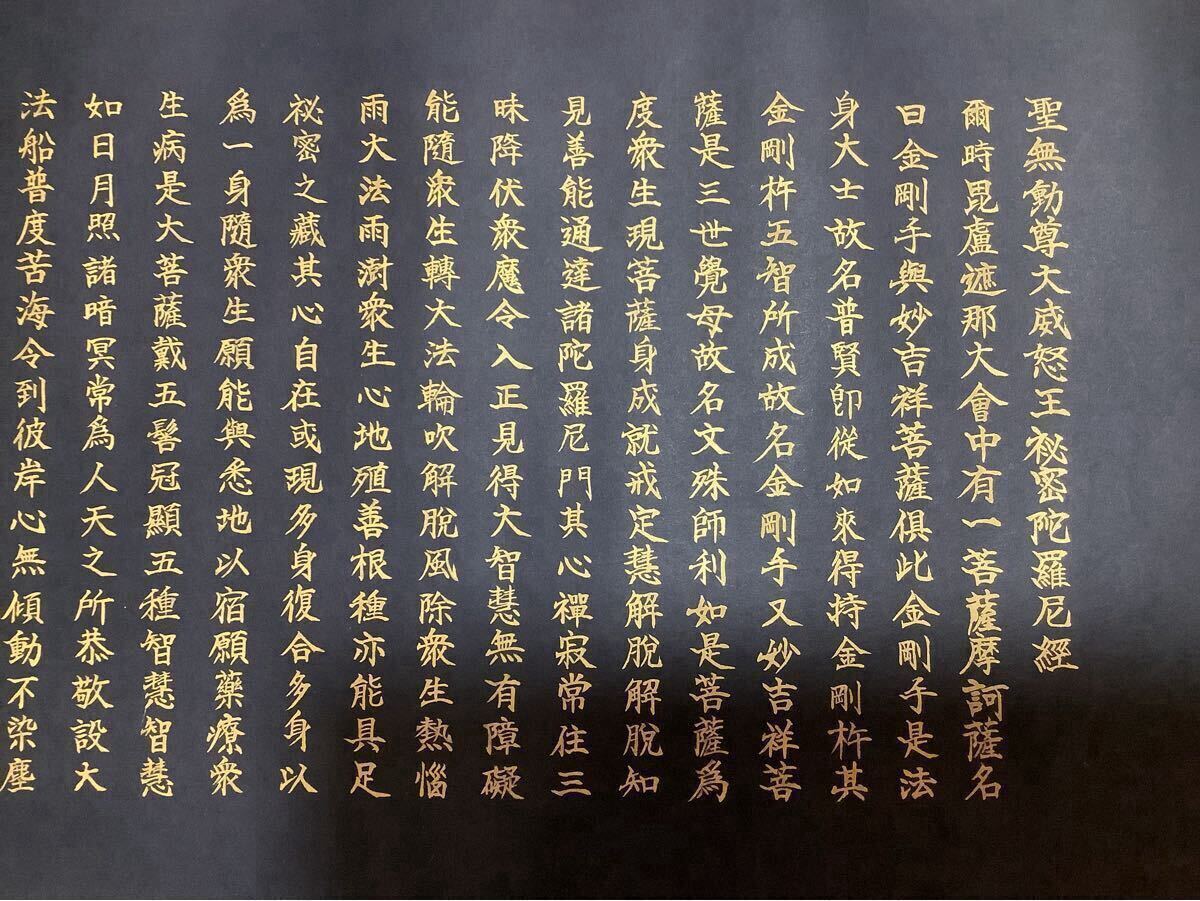 聖無動尊大威怒王祕密陀羅尼經
爾時毘盧遮那大會中有一菩薩摩訶薩名
曰金剛手與妙吉祥菩薩俱此金剛手是法
身大士故名普賢卽從如來得持金剛杵其
金剛杵五智所成故名金剛手又妙吉祥菩
薩是三世覺母故名文殊師利如是菩薩爲
度衆生現菩薩身成就戒定慧解脫解脫知
見善能通達諸陀羅尼門其心禪寂常住三
昧降伏衆魔令入正見得大智慧無有障礙
能隨衆生轉大法輪吹解脫風除衆生熱惱
雨大法雨澍衆生心地殖善根種亦能具足
祕密之藏其心自在或現多身復合多身以
爲一身隨衆生願能與悉地以宿願藥療衆
生病是大菩薩戴五髻冠顯五種智慧智慧
如日月照諸暗冥常爲人天之所恭敬設大
法船普度苦海令到彼岸心無傾動不染塵